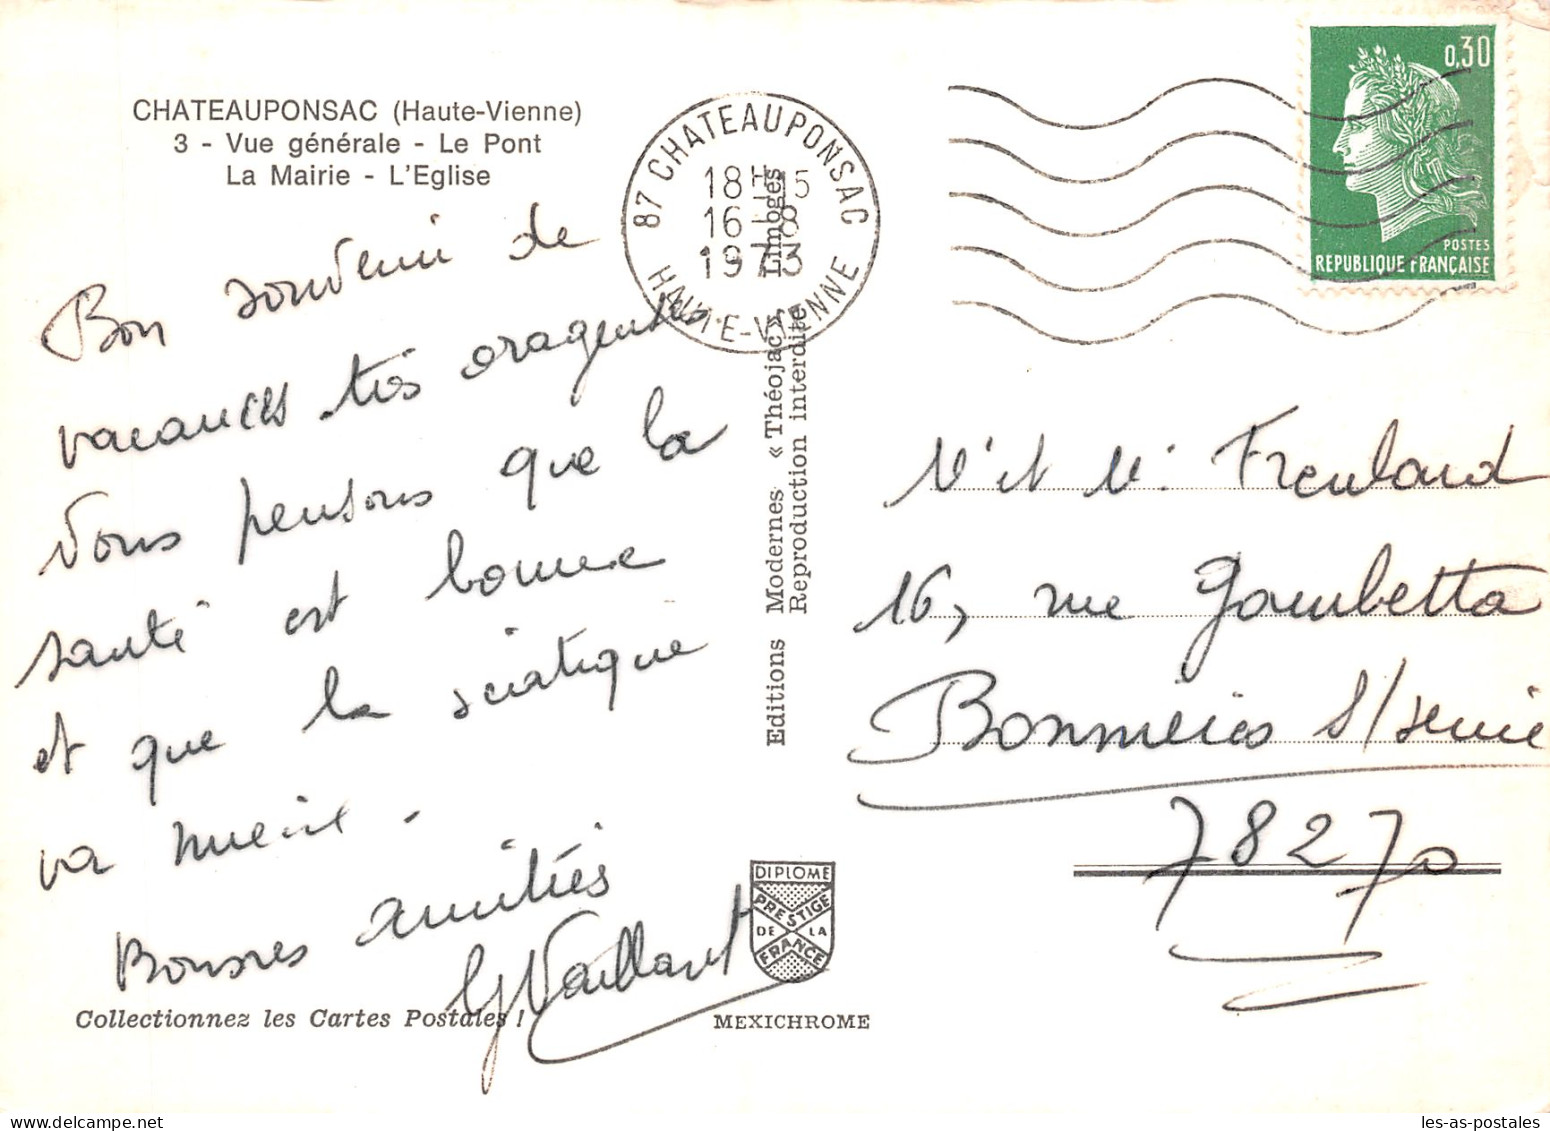 CHATEAUPONSAC (Haute-Vienne)
3 - Vue générale - Le Pont
La Mairie - L'Eglise
Bon souvenir de
vacances très orageuses.
Nous pensons que la
santé est bonne
et que la sciatique
va mieux.
Bonnes amitiés
G Vaillant
Collectionnez les Cartes Postales !
87 CHATEAUPONSAC
18H15
16-8
1973
HAUTE-VIENNE
Editions Modernes « Théojac », Limoges
Reproduction interdite
DIPLOME
PRESTIGE
DE LA
FRANCE
MEXICHROME
0,30
POSTES
REPUBLIQUE FRANÇAISE
16, rue Gambetta
Bonnières s/seine
78270
les-as-postales